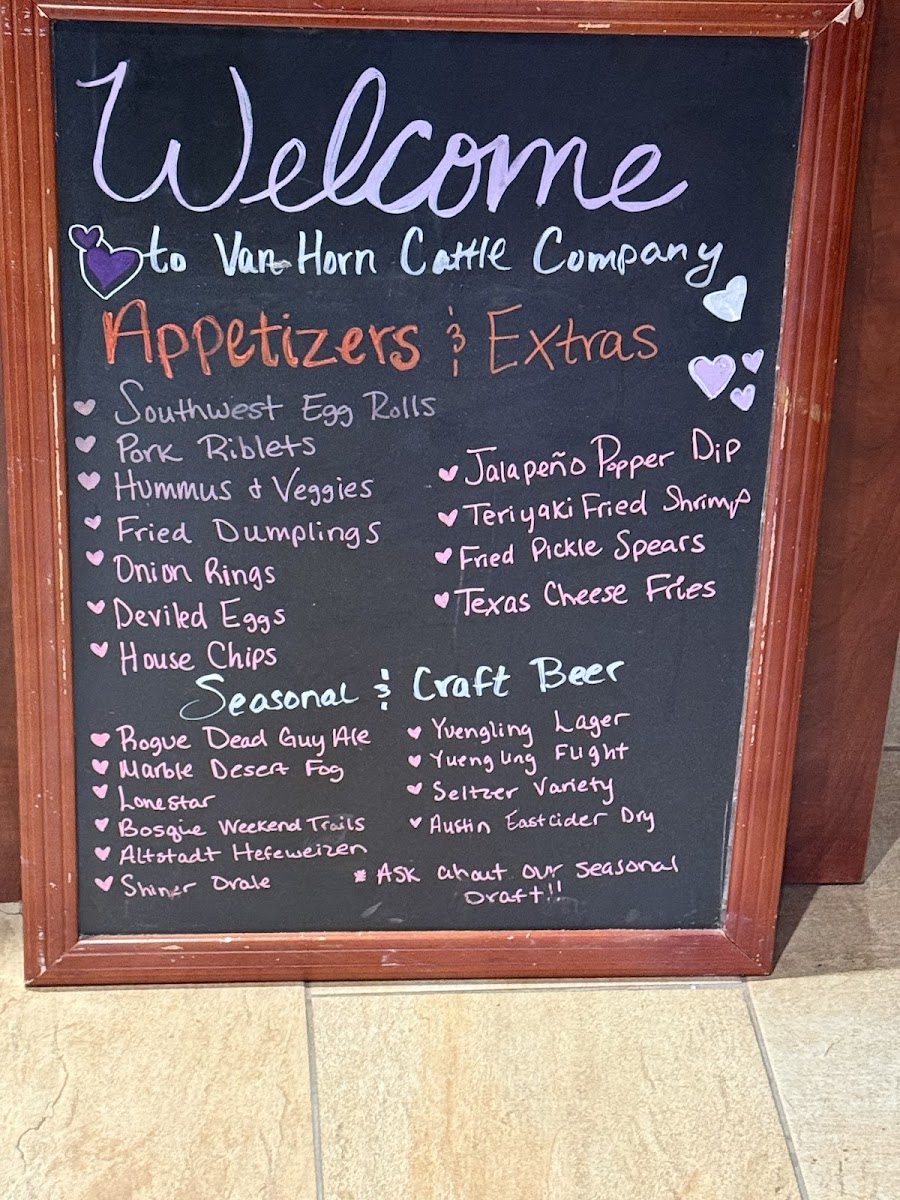 Welcome
to Van Horn Cattle Company
Appetizers & Extras
Southwest Egg Rolls
Pork Riblets
Hummus & Veggies
Fried Dumplings
Onion Rings
Deviled Eggs
House Chips
Jalapeño Popper Dip
Teriyaki Fried Shrimp
Fried Pickle Spears
Texas Cheese Fries
Seasonal & Craft Beer
Rogue Dead Guy Ale
Marble Desert Fog
Lonestar
Bosque Weekend Trails
Altstadt Hefeweizen
Shiner Orale
Yuengling Lager
Yuengling Flight
Seltzer Variety
Austin Eastcider Dry
* Ask about our seasonal
Draft!!